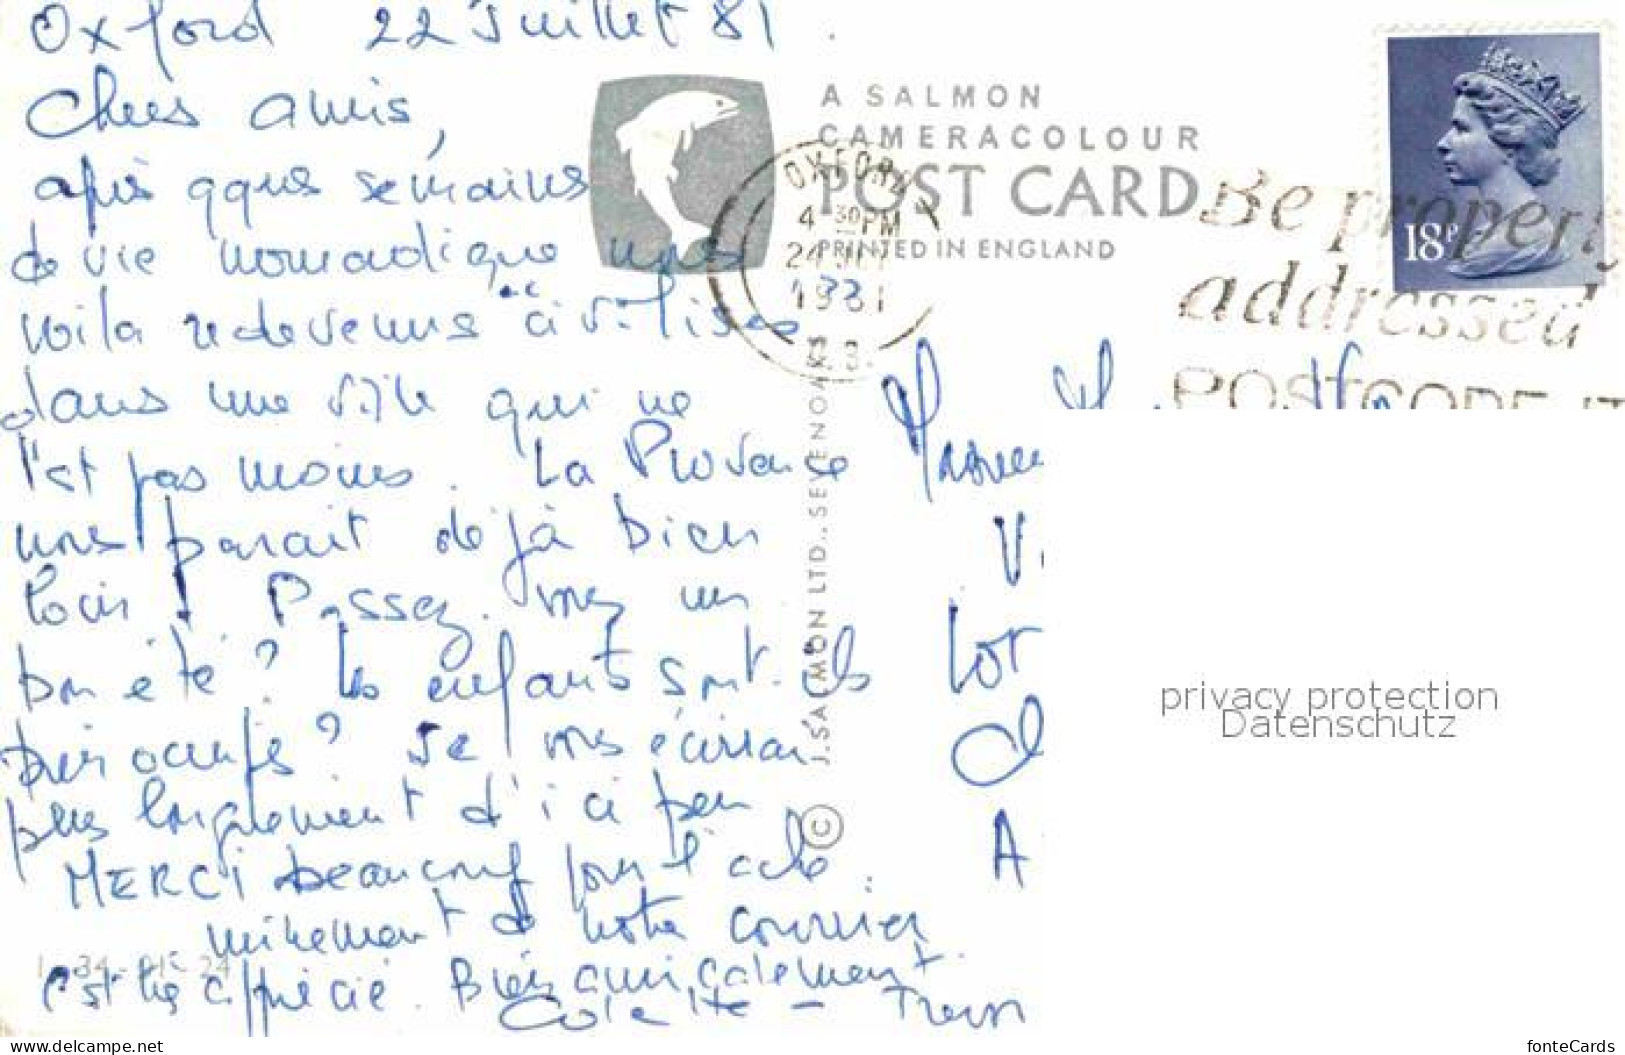 Oxford 22 Juillet 81.
Chers amis,
après qques semaines
de vie nomadique nous
voilà redevenus civilisés
dans une ville qui ne
l'est pas moins. La Provence
nous parait déjà bien
loin ! Passez-vous un
bon été ? Les enfants sont-ils
bien occupés ? Je vous écrirai
plus longuement d'ici peu
MERCI beaucoup pour l'ache
minement de notre courrier
c'est très apprécié. Bien amicalement.
Colette - Trevor
A SALMON
CAMERACOLOUR
POST CARD
PRINTED IN ENGLAND
OXFORD
4 30 PM
24 JLY
1981
Be properly
addressed
POSTCODE IT
18P
J. SALMON LTD., SEVENOAKS
©
privacy protection
Datenschutz
www.delcampe.net
fonteCards